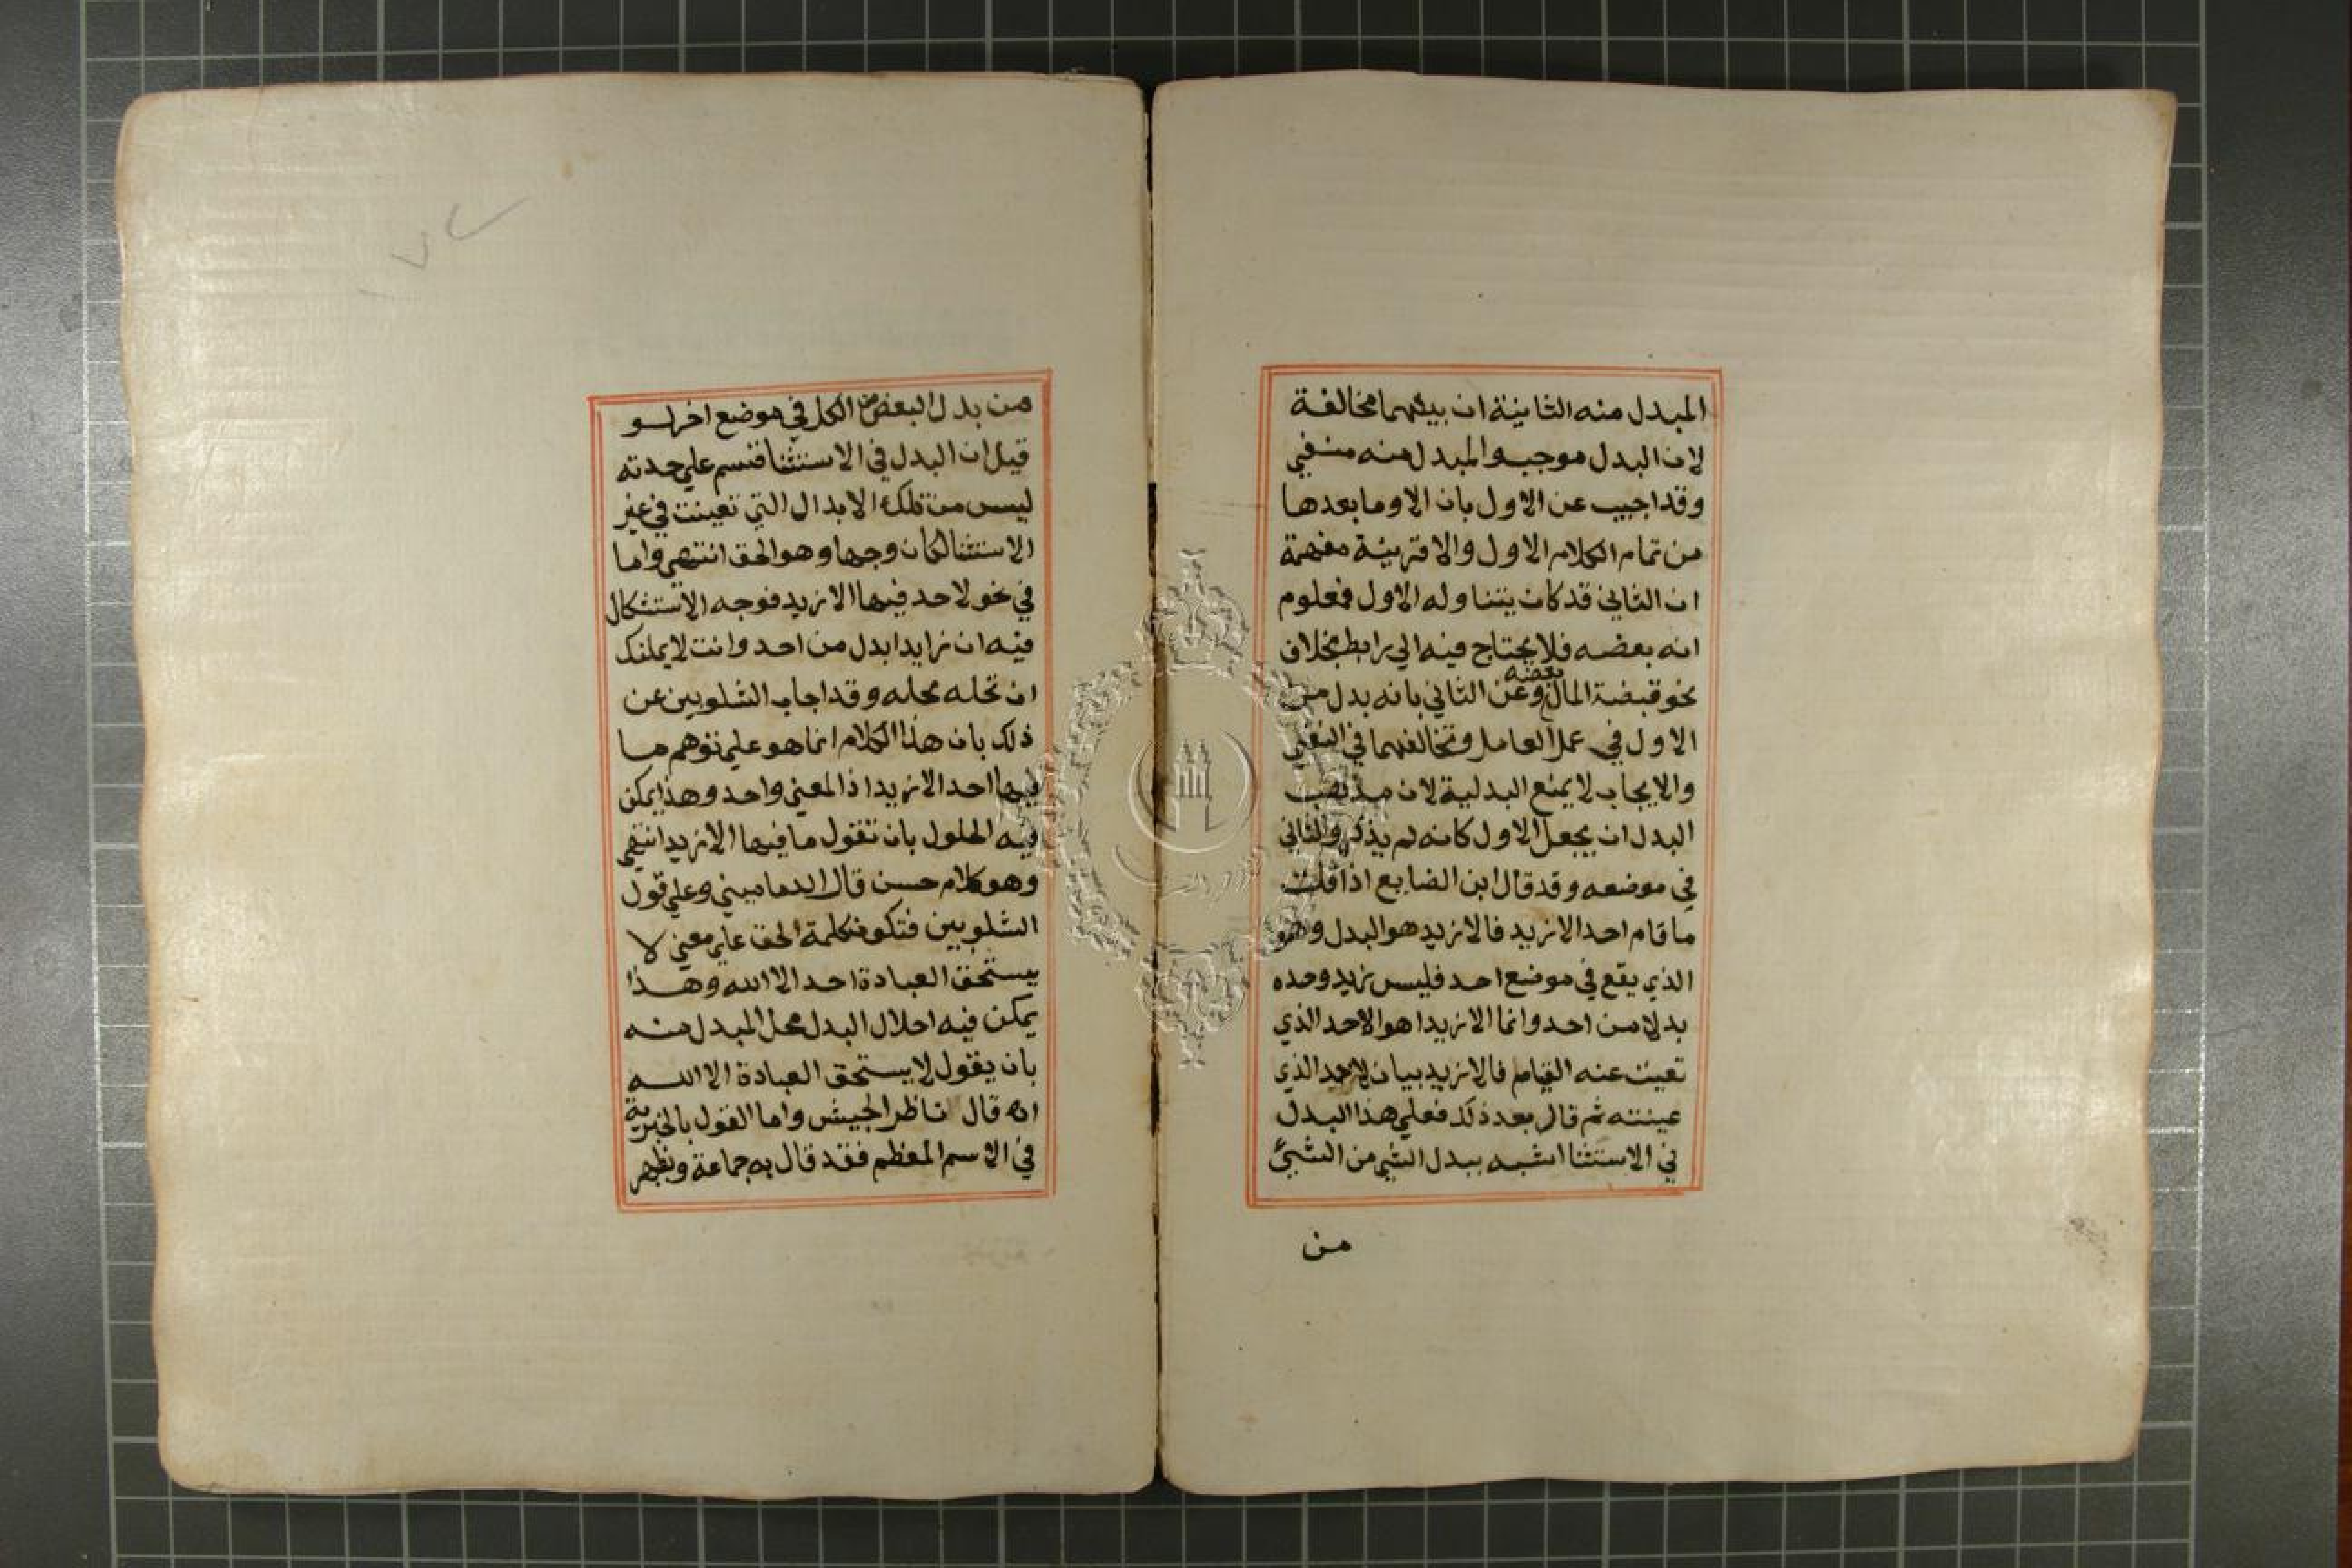 المبدل منه الثانية ان بينهما مخالفة
لان البدل موجب والمبدل منه منفي
وقد اجيب عن الاول بان الا وما بعدها
من تمام الكلام الاول والا قرينة مفهمة
ان الثاني قد كان يتناوله الاول فمعلوم
انه بعضه فلا يحتاج فيه الي رابط بخلاف
نحو قبضة المال بعضه وعن الثاني بانه بدل من
الاول في عمل العامل وتخالفهما في النفي
والايجاب لا يمنع البدلية لان مذهب
البدل ان يجعل الاول كانه لم يذكر والثاني
في موضعه وقد قال ابن الضايع اذا قلت
ما قام احد الا زيد فالا زيد هو البدل وهو
الذي يقع في موضع احد فليس زيد وحده
بدلا من احد وانما الا زيدا هو الاحد الذي
نفيت عنه القيام فالا زيد بيان للاحد الذي
عينته ثم قال بعد ذلك فعلي هذا البدل
في الاستثنا اشبه ببدل الشي من الشيئ
من
من بدل البعض من الكل في موضع اخر لو
قيل ان البدل في الاستثنا قسم علي حدته
ليس من تلك الابدال التي تعينت في غير
الاستثنا لكان وجها وهو الحق انتهي واما
في نحو لا احد فيها الا زيد فوجه الاستشكال
فيه ان زايدا بدل من احد وانت لا يملنك
ان تحله محله وقد اجاب الشلوبين عن
ذلك بان هذا الكلام انما هو علي توهم ما
فيها احد الا زيدا ذ المعني واحد وهذا يمكن
فيه الحلول بان تقول ما فيها الا زيد انتهي
وهو كلام حسن قال الدماميني وعلي قول
الشلوبين فتكون كلمة الحق علي معني لا
يستحق العبادة احد الا الله وهذا
يمكن فيه احلال البدل محل المبدل منه
بان يقول لا يستحق العبادة الا الله
اه قال ناظر الجيش واما القول بالخبرية
في الاسم المعظم فقد قال به جماعة ويظهر